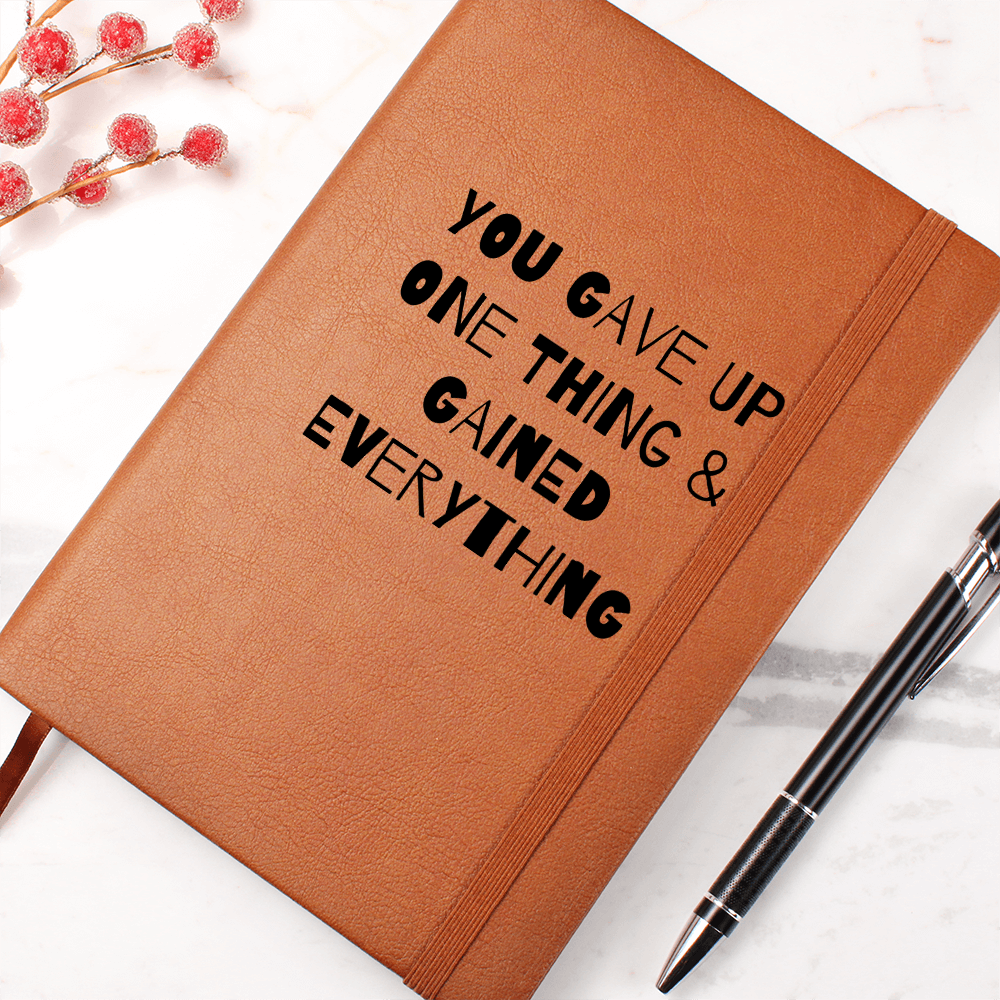 YOU GAVE UP
ONE THING &
GAINED
EVERYTHING